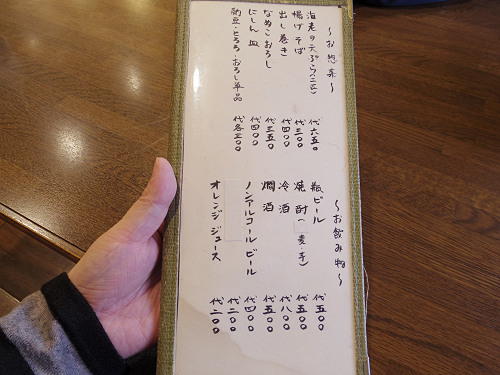 〜お惣菜〜
海老の天ぷら(二尾) 代六五〇
揚げそば 代三〇〇
出し巻き 代四〇〇
なめこおろし 代三五〇
にしん皿 代四〇〇
納豆・とろろ・おろし単品 代各二〇〇
〜お飲み物〜
瓶ビール 代五〇〇
焼酎(麦・芋) 代五〇〇
冷酒 代八〇〇
燗酒 代五〇〇
ノンアルコールビール 代四〇〇
代二〇〇
オレンジジュース 代二〇〇